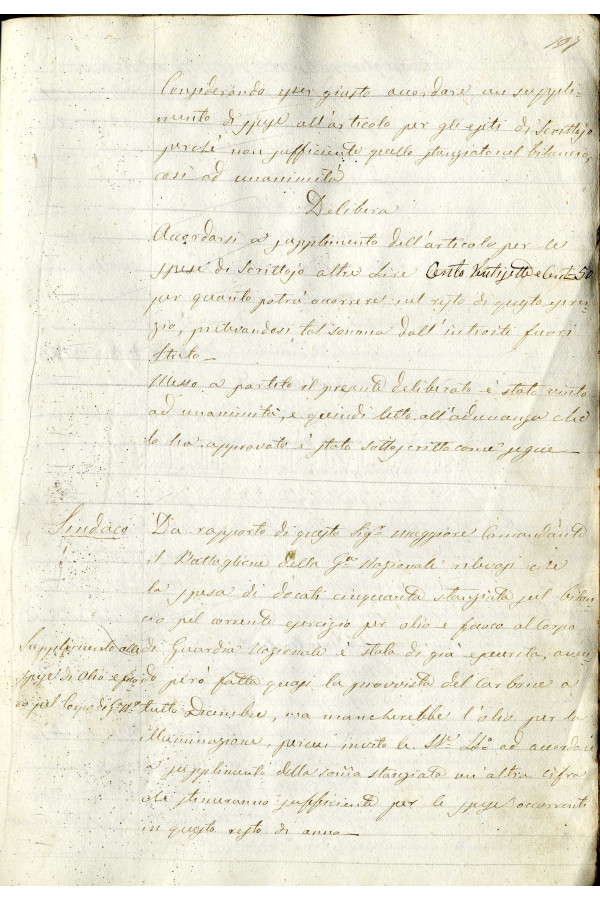 197
Considerando esser giusto accordare un supple-
mento di spese all'articolo per gli esiti di Scrittojo
perché non sufficiente quello stanziato nel bilancio,
così ad unanimità
Delibera
Accordarsi a supplimento dell'articolo per le
spese di Scrittojo altre Lire Cento Ventisette e Cent. 50
per quanto potrà occorrere nel resto di questo eserci-
zio, prelevandosi tal somma dall'introiti fuori
Stato.
Messo a partito il presente deliberato è stato vinto
ad unanimità, e quindi letto all'adunanza che
lo ha approvato è stato sottoscritto come segue
Sindaco
Da rapporto di questo Sigr. Maggiore Comandante
il Battaglione della Ga. Nazionale rilevasi che
la spesa di docati cinquanta stanziata sul bilan-
cio pel corrente esercizio per olio e fuoco al Corpo
Supplimento alle
di Guardia Nazionale è stata di già esaurita, aven-
spese di Olio e fuo-
do però fatta quasi la provvista del Carbone a
co pel Corpo di Ga. Nle.
tutto Dicembre, ma mancherebbe l'olio per la
illuminazione, perciò invito le SS. LL. ad accordare
a supplimento della somma stanziata un'altra cifra
che stimeranno sufficiente per le spese occorrenti
in questo resto di anno